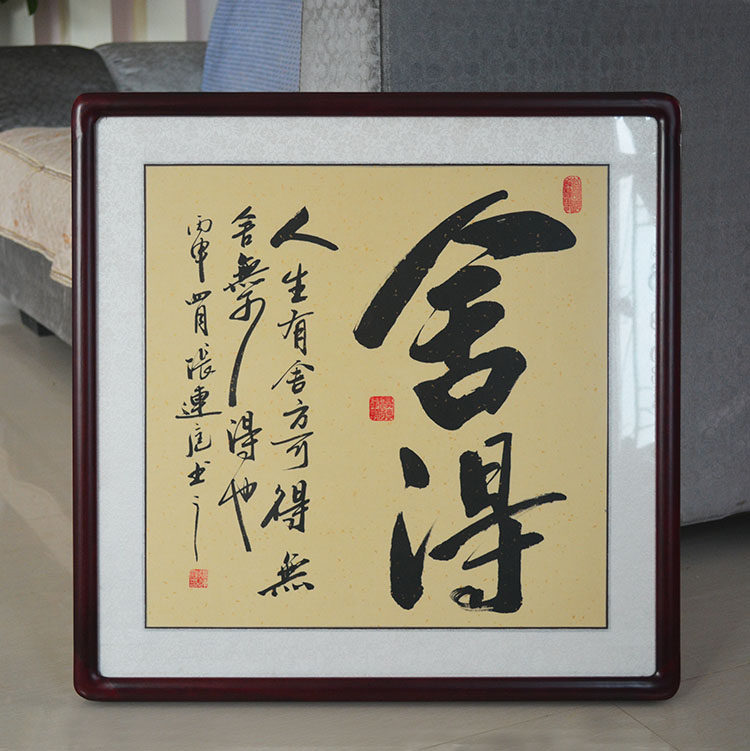 舍得
人生有舍方可得無
舍無所得也
丙申四月張連庭書之